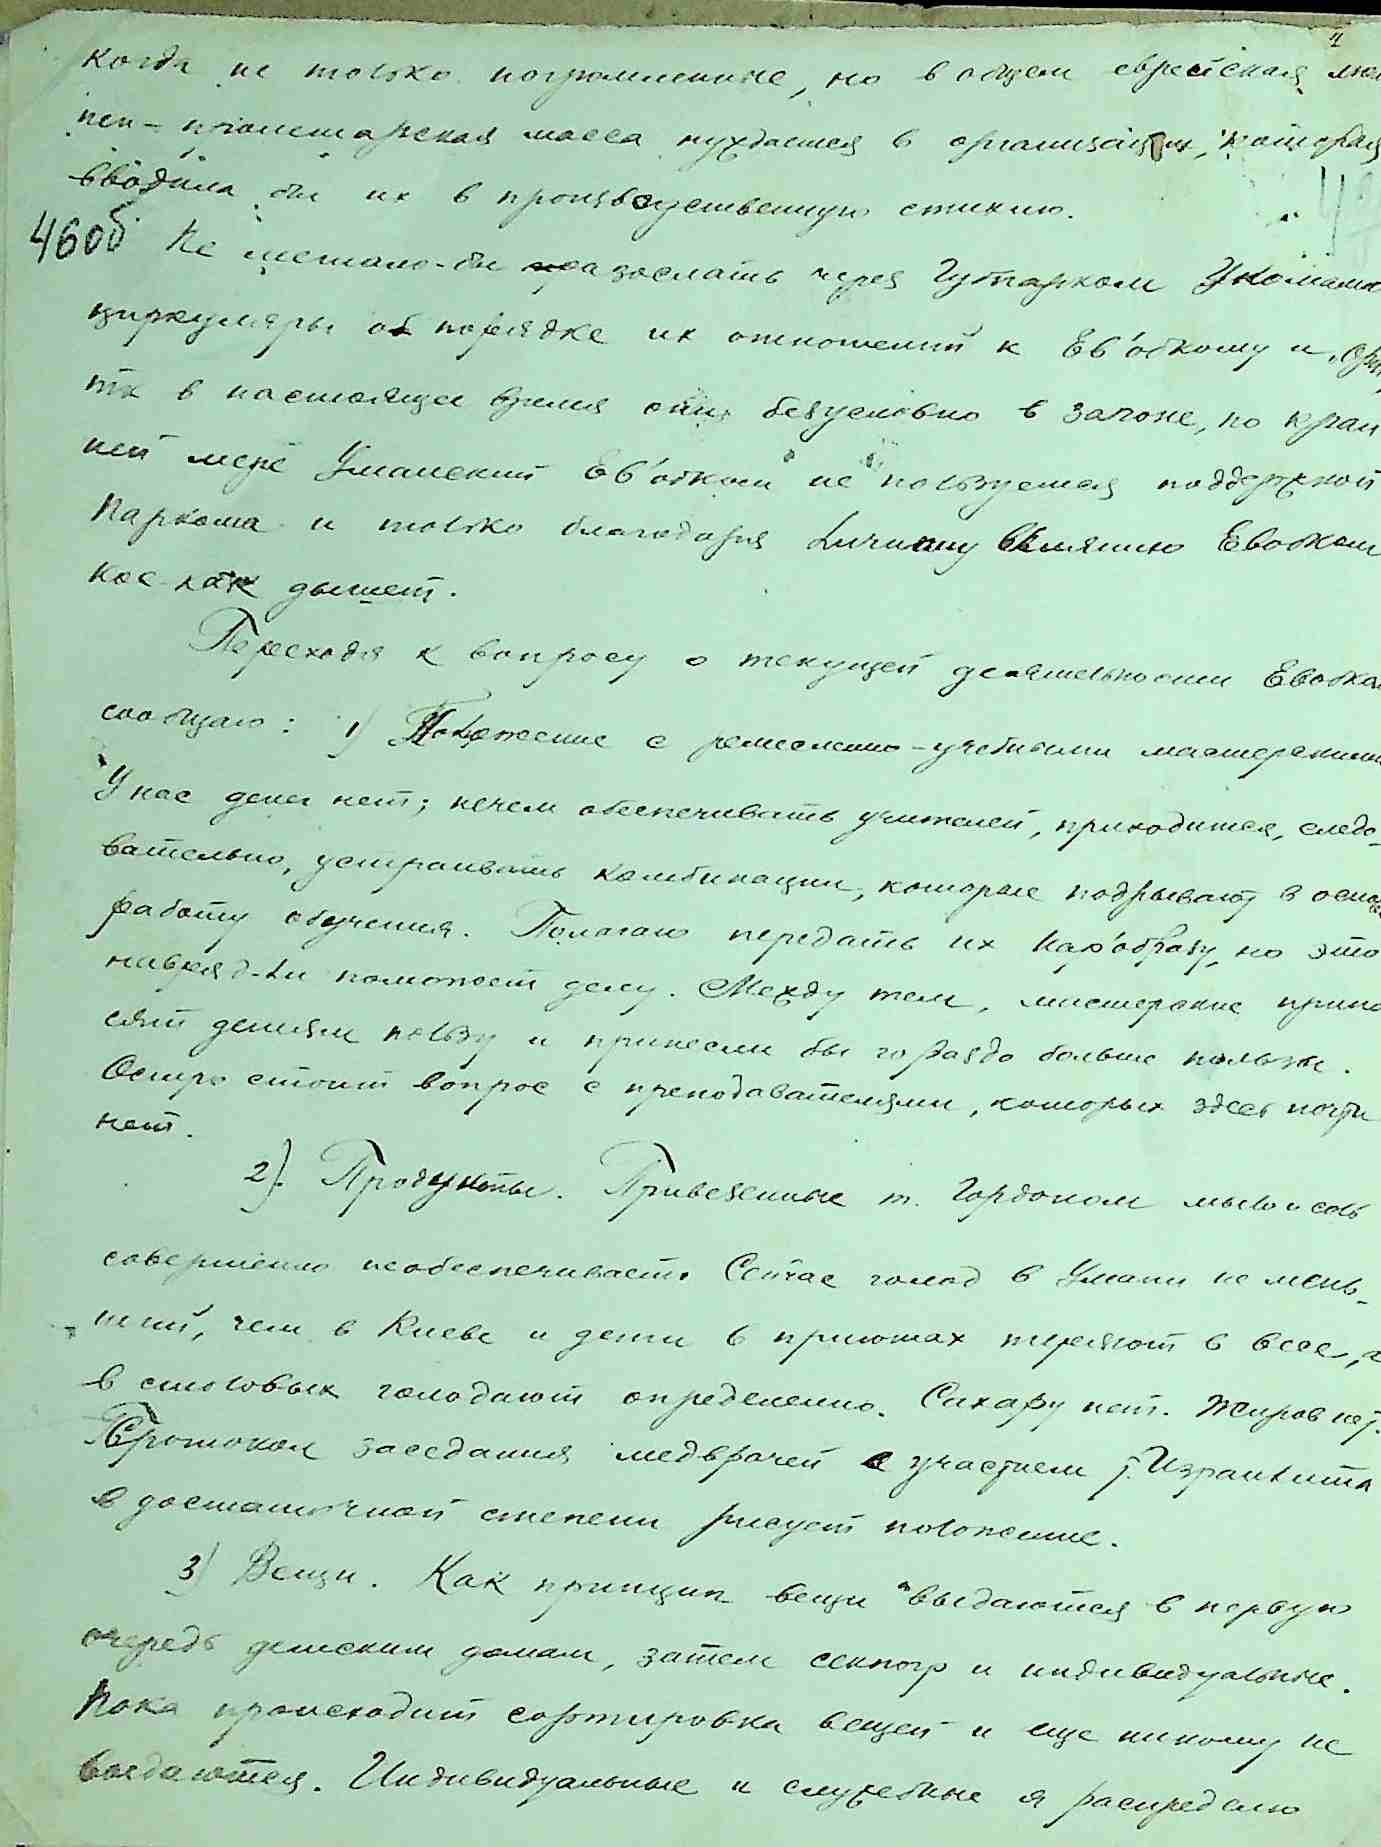 4
когда не только погромленные, но в общем еврейская люм
пен-пролетарская масса нуждается в организации, которая
вводила бы их в производственную стихию.
460б Не мешало-бы разослать через Губпарком Укомам
циркуляры об порядке их отношений к Ев'обкому и
тк в настоящее время они безусловно в загоне, по край
ней мере Уманский Ев'обком не пользуется поддержкой
Паркома и только благодаря личному влиянию Евобком
кое-как дышет.
Переходя к вопросу о текущей деятельности Евобкома
сообщаю: 1) Положение с ремесленно-учебными мастерскими
У нас денег нет; нечем обеспечивать учителей, приходится, следо-
вательно, устраивать комбинации, которые подрывают в основе
работу обучения. Полагаю передать их Нар'образу, но это
навряд-ли поможет делу. Между тем, мастерские прино
сят детям пользу и принесли бы гораздо больше пользы.
Остро стоит вопрос с преподавателями, которых здесь почти
нет.
2). Продукты. Привезенные т. Гордоном мыло и соль
совершенно необеспечивает. Сейчас голод в Умани не мень-
ший, чем в Киеве и дети в приютах теряют в весе, а
в столовых голодают определенно. Сахару нет. Жиров нет.
Протокол заседания медврачей с участием т. Израилита
в достаточной степени рисует положение.
3) Вещи. Как принцип вещи выдаются в первую
очередь детским домам, затем и индивидуальные.
Пока происходит сортировка вещей и еще никому не
выдаются. Индивидуальные и служебные я распределю